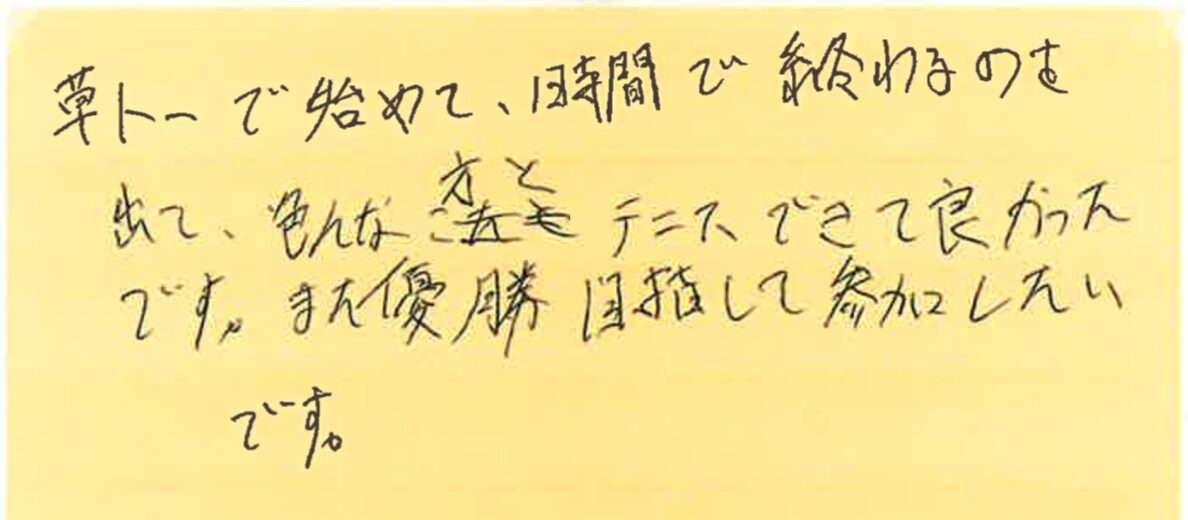 草トーで始めて、時間で終わるのを
出て、色んな方とテニスできて良かった
です。また優勝目指して参加したい
です。